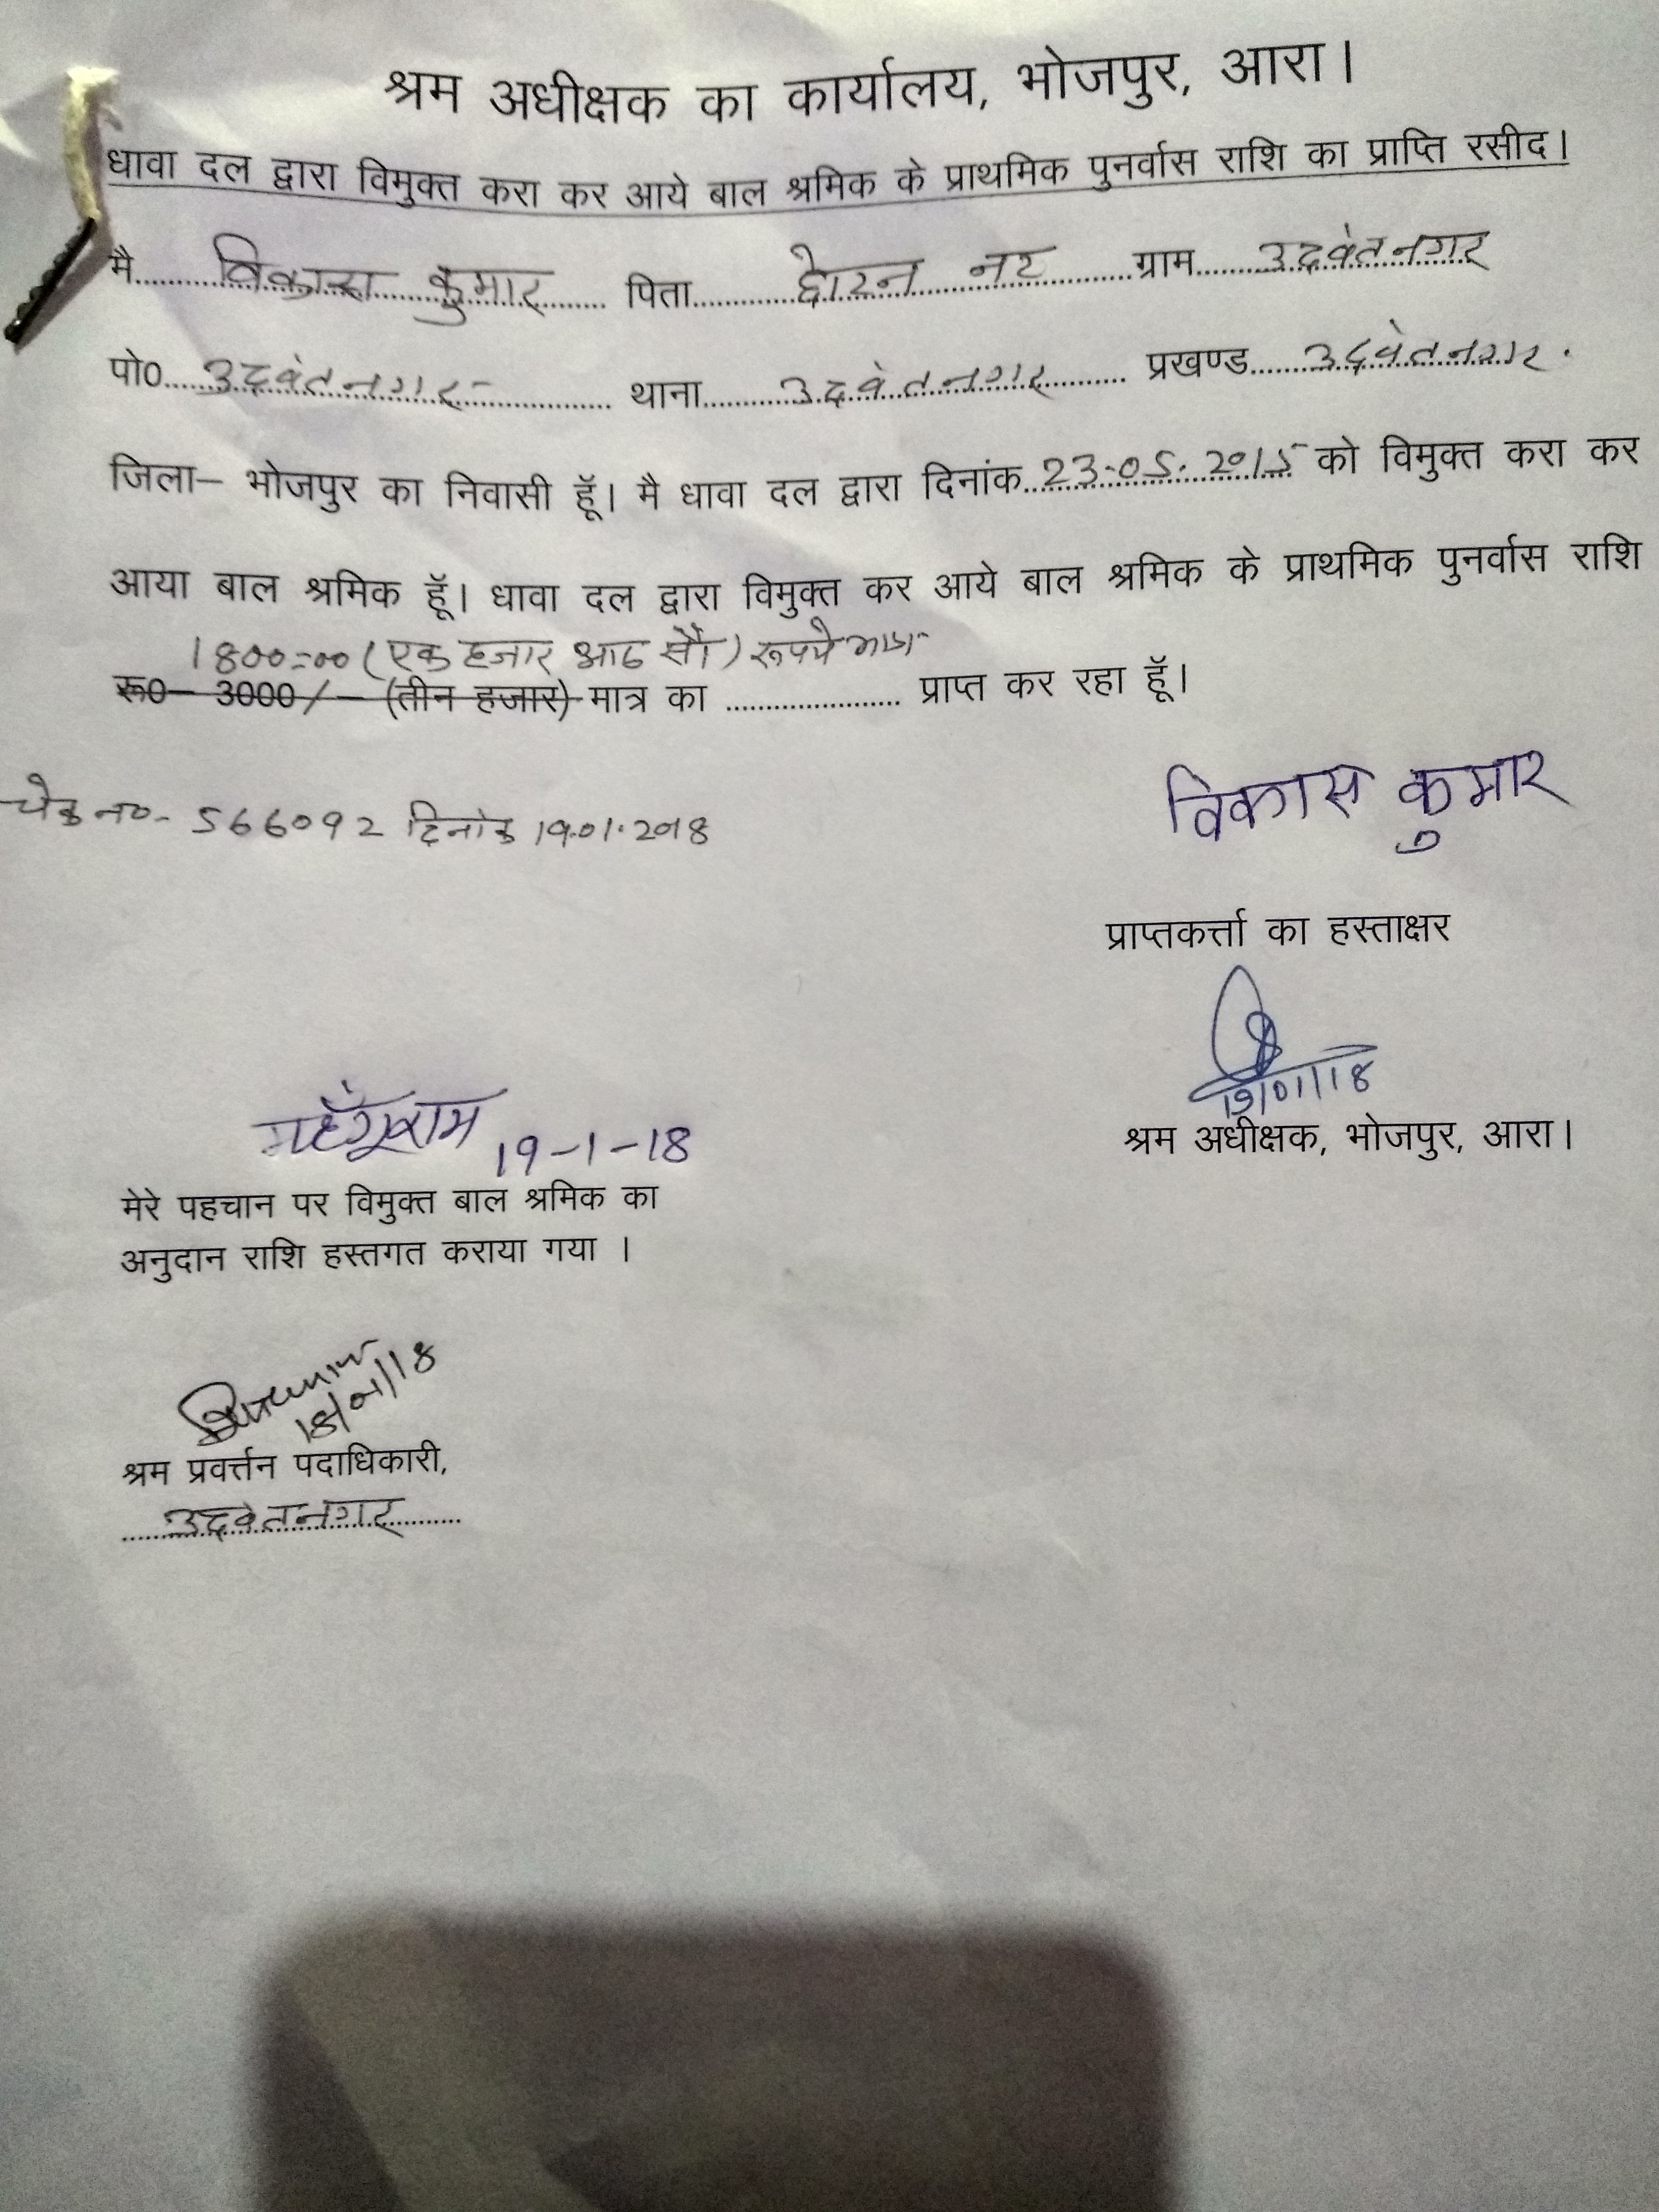 श्रम अधीक्षक का कार्यालय, भोजपुर, आरा।
धावा दल द्वारा विमुक्त करा कर आये बाल श्रमिक के प्राथमिक पुनर्वास राशि का प्राप्ति रसीद।
मै विकास कुमार पिता नट ग्राम उदवंतनगर
पो० उदवंतनगर थाना उदवंतनगर प्रखण्ड उदवंतनगर
जिला– भोजपुर का निवासी हूँ। मै धावा दल द्वारा दिनांक 23.05.2015 को विमुक्त करा कर
आया बाल श्रमिक हूँ। धावा दल द्वारा विमुक्त कर आये बाल श्रमिक के प्राथमिक पुनर्वास राशि
1800=00 (एक हजार आठ सौ) रूपये मात्र
रू०– 3000/– (तीन हजार) मात्र का .................... प्राप्त कर रहा हूँ।
चेक न०- 566092 दिनांक 19.01.2018
विकास कुमार
प्राप्तकर्त्ता का हस्ताक्षर
19/01/18
श्रम अधीक्षक, भोजपुर, आरा।
महँगूराम 19-1-18
मेरे पहचान पर विमुक्त बाल श्रमिक का
अनुदान राशि हस्तगत कराया गया ।
18/01/18
श्रम प्रवर्त्तन पदाधिकारी,
उदवंतनगर